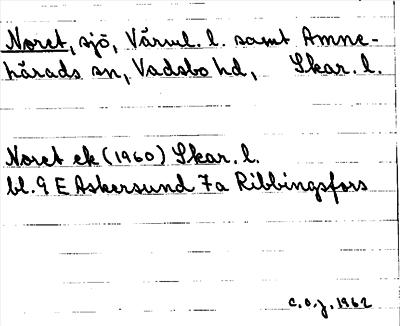 Noret, sjö, Värml. l. samt Amne-
härads sn, Vadsbo hd, Skar. l.
Noret ek (1960) Skar. l.
bl. 9 E Askersund 7a Ribbingsfors
C.O.J. 1962